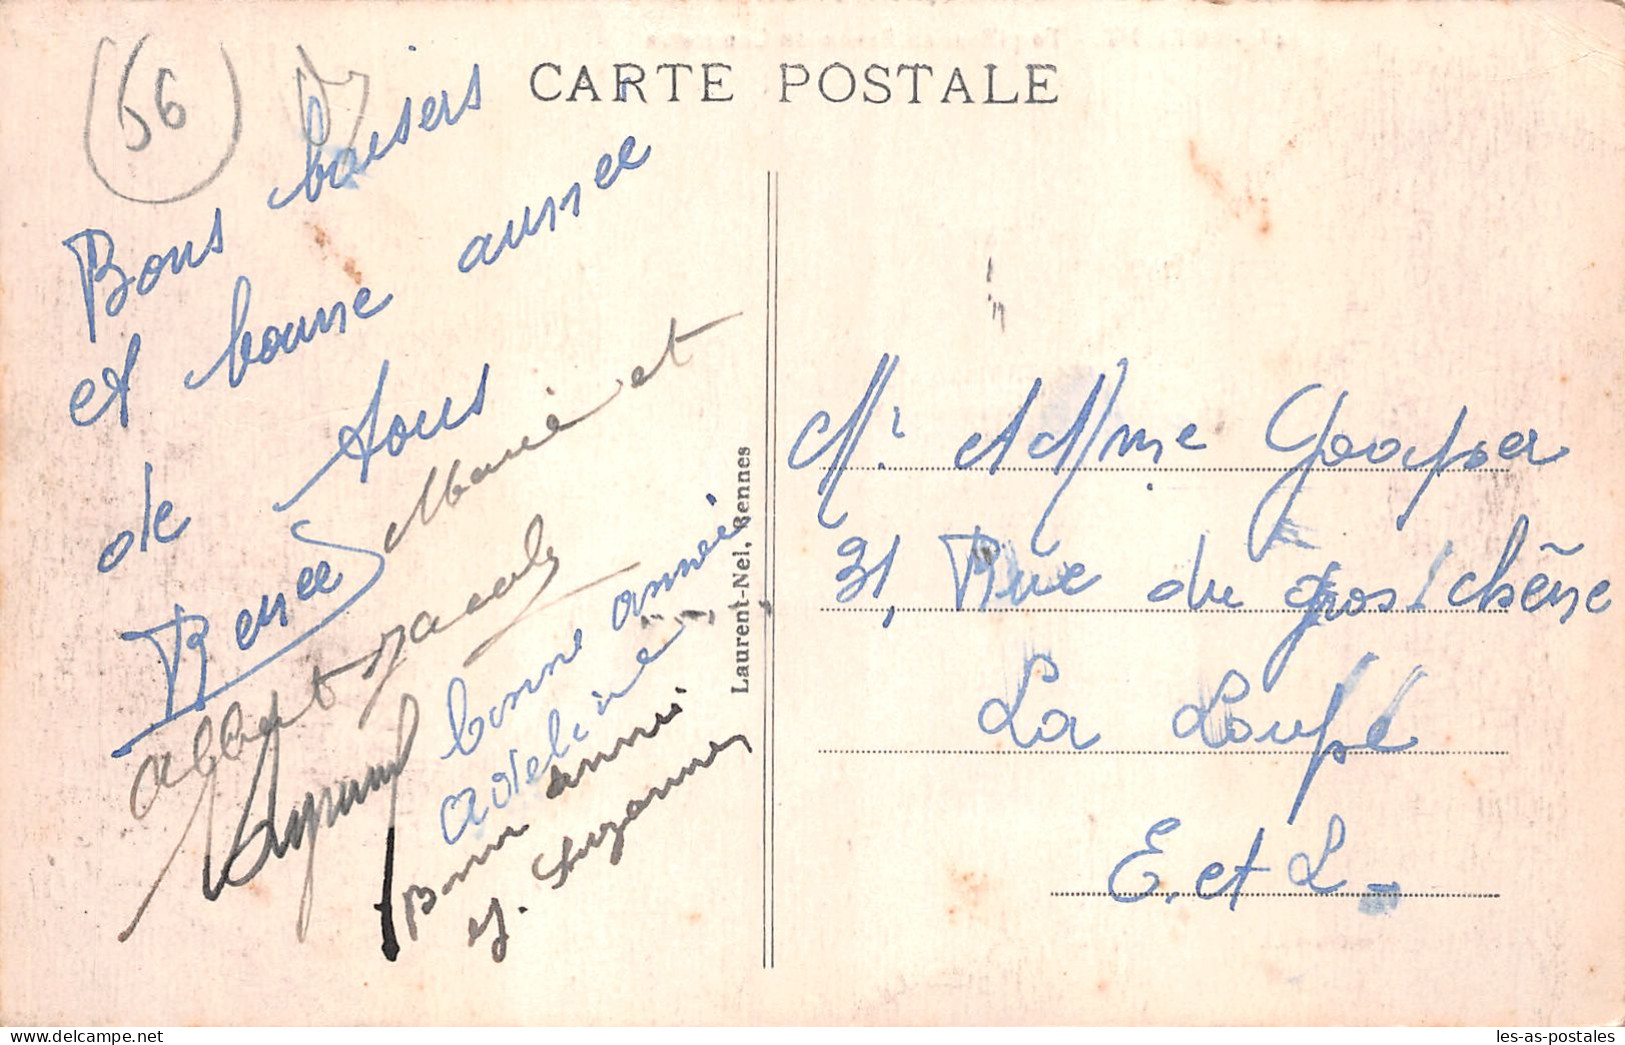 CARTE POSTALE
(56)
Bons baisers
et bonne année
de tous
Renée Marie et
Albert Jacob
Raymond
bonne année
Adeline
Bonne année
Suzanne
Laurent-Nel, Rennes
Mr et Mme
31, Rue du gros chêne
La Loupe
E. et L.
les-as-postales